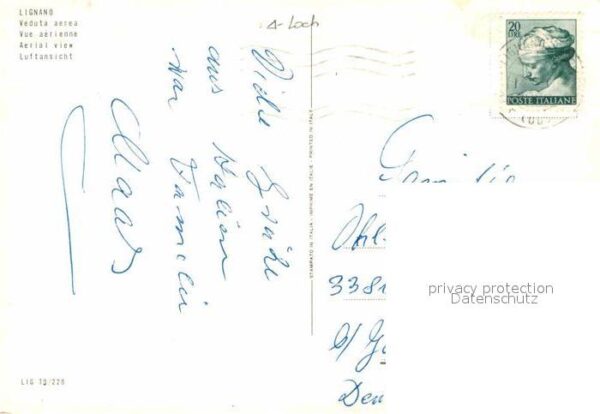 LIGNANO
Veduta aerea
Vue aérienne
Aerial view
Luftansicht
LIG 13/226
Viele Grüße
aus Italien
Familie
Maas
STAMPATO IN ITALIA - IMPRIMÉ EN ITALIE - PRINTED IN ITALY
20
LIRE
POSTE ITALIANE
Familie
Ohl
3381
b/ G
privacy protection
Datenschutz